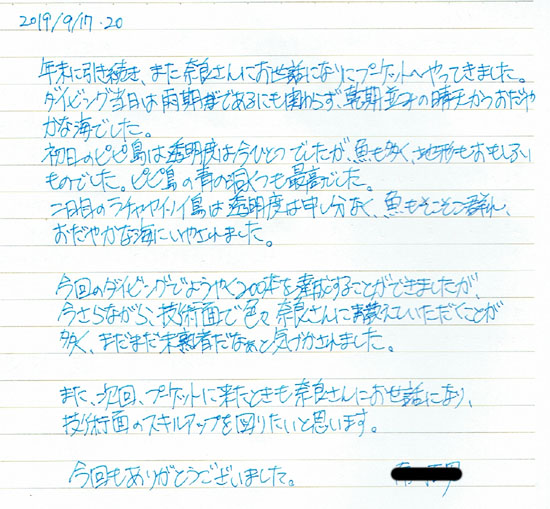 2019/9/17・20
年末に引き続き、また奈良さんにお世話になりにプーケットへやってきました。
ダイビング当日は雨期であるにも関わらず、乾期並みの晴天かつおだや
かな海でした。
初日のピピ島は透明度は今ひとつでしたが、魚も多く、地形もおもしろい
ものでした。ピピ島の青の洞くつも最高でした。
二日目のラチャヤイ・ノイ島は透明度は申し分なく、魚もそこそこ群れ、
おだやかな海にいやされました。
今回のダイビングでようやく200本を達成することができましたが、
今さらながら、技術面で色々奈良さんに教えていただくことが
多く、まだまだ未熟者だなぁと気づかされました。
また、次回、プーケットに来たときも奈良さんにお世話になり、
技術面のスキルアップを図りたいと思います。
今回もありがとうございました。